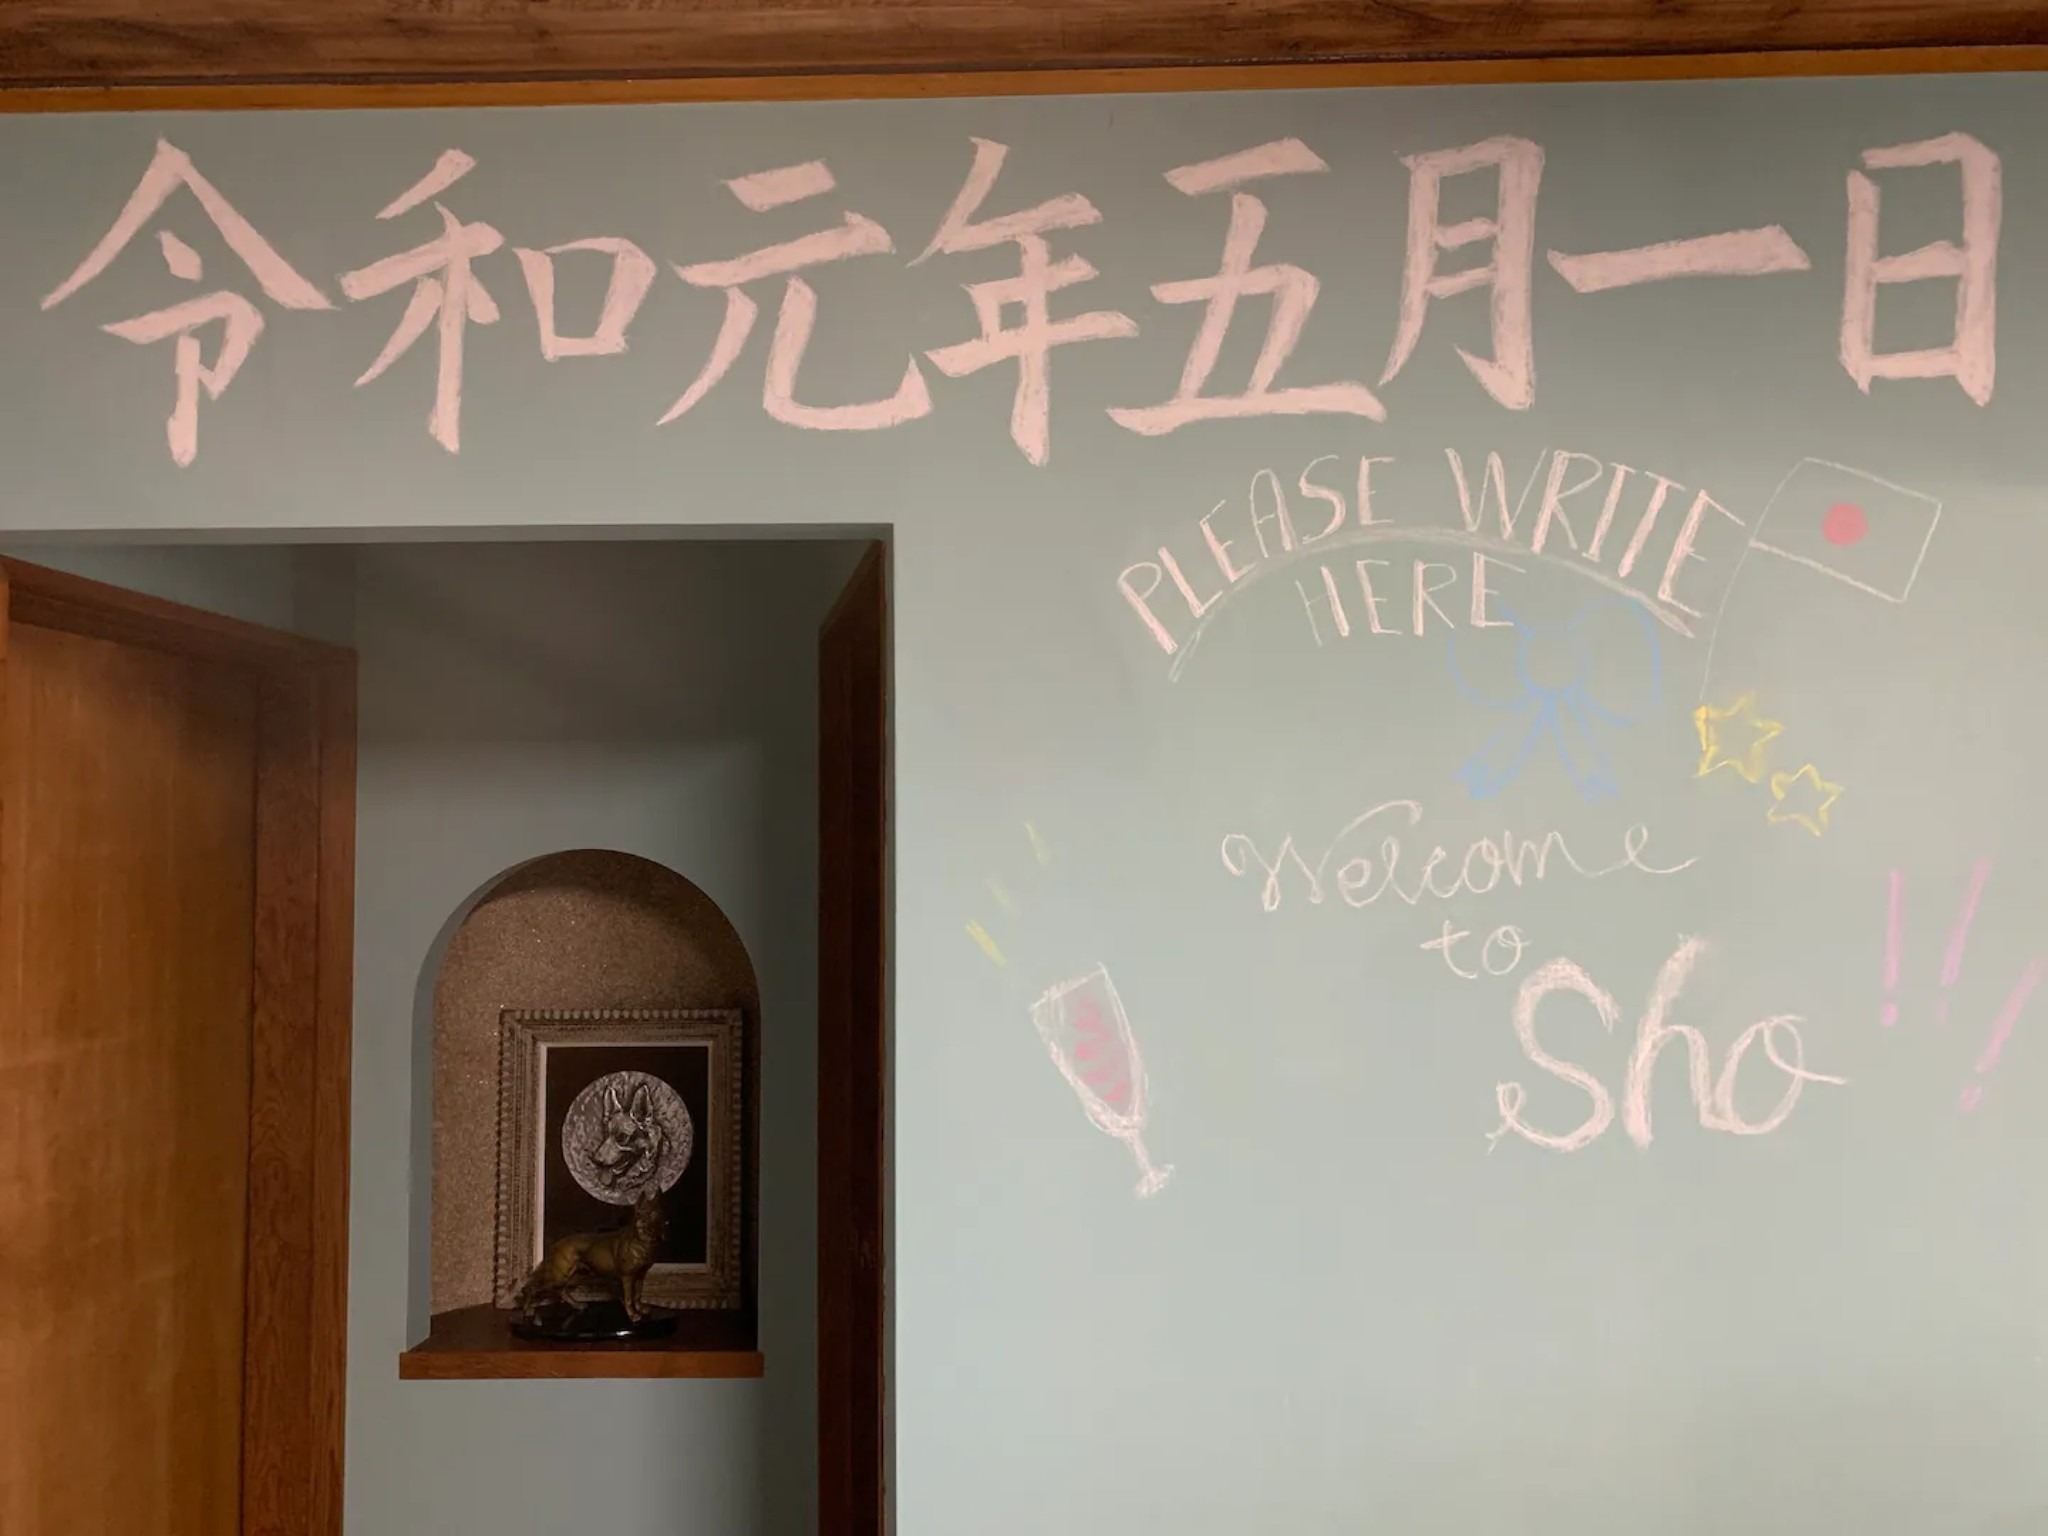 令和元年五月一日
PLEASE WRITE
HERE
Welcome
to
Sho
!!!